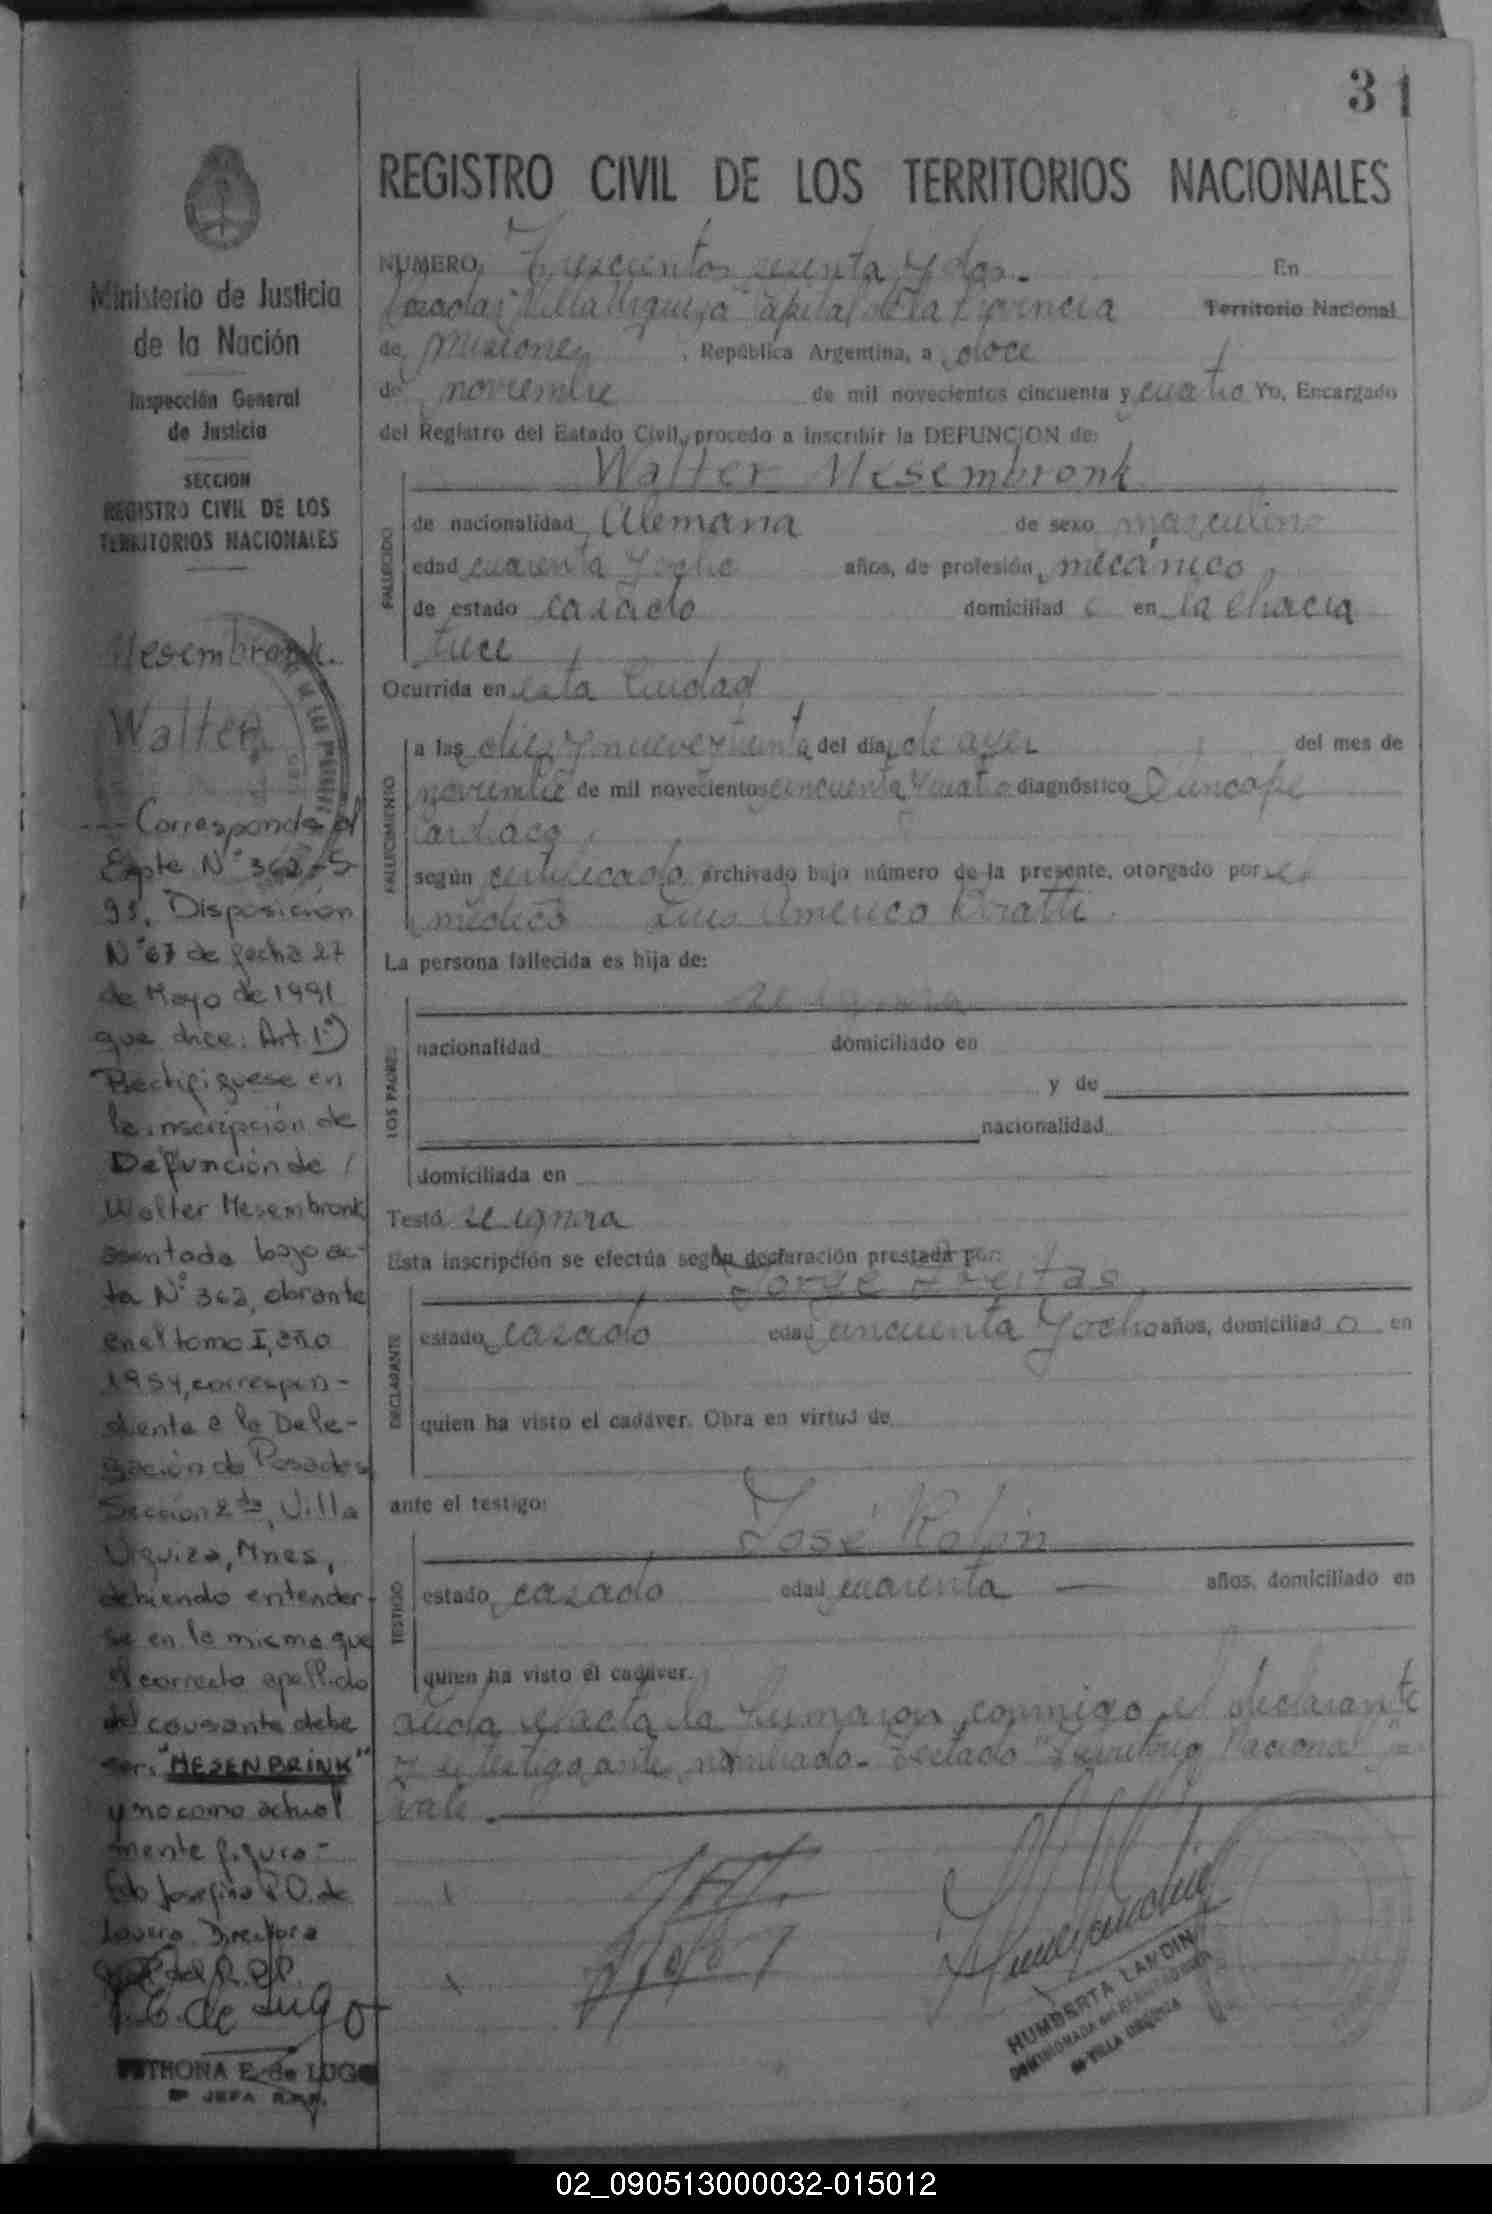 31
REGISTRO CIVIL DE LOS TERRITORIOS NACIONALES
Ministerio de Justicia
de la Nación
Inspección General
de Justicia
SECCION
REGISTRO CIVIL DE LOS
TERRITORIOS NACIONALES
Mesembronk.
Walter
Corresponde al
Expte N° 362-S-
91, Disposición
N° 67 de fecha 27
de Mayo de 1991
que dice: Art. 1°)
Rectifiquese en
la inscripción de
Defunción de
Walter Mesembronk
asentada bajo ac-
ta N° 362, obrante
en el tomo I, año
1954, correspon-
diente a la Dele-
gación de Posadas
Sección 2da, Villa
Urquiza, Mnes,
debiendo entender-
se en la misma que
el correcto apellido
del causante debe
ser: "MESENBRINK"
y no como actual
mente figura-
Fdo Josefina de
Directora
de Lugo
PETRONA E. de LUGO
JEFA R.P.P.
NUMERO Trescientos sesenta y dos.- En
Posadas "Villa Urquiza" Capital de la Provincia Territorio Nacional
de Misiones, República Argentina, a doce
de noviembre de mil novecientos cincuenta y cuatro Yo, Encargado
del Registro del Estado Civil, procedo a inscribir la DEFUNCION de:
Walter Mesembronk
FALLECIDO
de nacionalidad Alemana de sexo masculino
edad cuarenta y ocho años, de profesión mecánico,
de estado casado domiciliad o en la chacra
trece
Ocurrida en esta Ciudad
FALLECIMIENTO
a las diez y nueve y treinta del día de ayer del mes de
noviembre de mil novecientos cincuenta y cuatro diagnóstico Síncope
cardiaco
según certificado archivado bajo número de la presente, otorgado por el
médico Luis Américo
La persona fallecida es hija de:
LOS PADRES
se ignora
nacionalidad domiciliado en
y de
nacionalidad
domiciliada en
Testó se ignora
Esta inscripción se efectúa según declaración prestada por:
DECLARANTE
Jorge Freitas
estado casado edad cincuenta y ocho años, domiciliad o en
quien ha visto el cadáver. Obra en virtud de
ante el testigo:
TESTIGO
José Rolón
estado casado edad cuarenta — años, domiciliado en
quien ha visto el cadáver.
Leída el acta la firmaron conmigo el declarante
y el testigo ante nombrado.- Testado "Territorio Nacional" no
vale.-
HUMBERTA LANDIN
VILLA URQUIZA
02_090513000032-015012